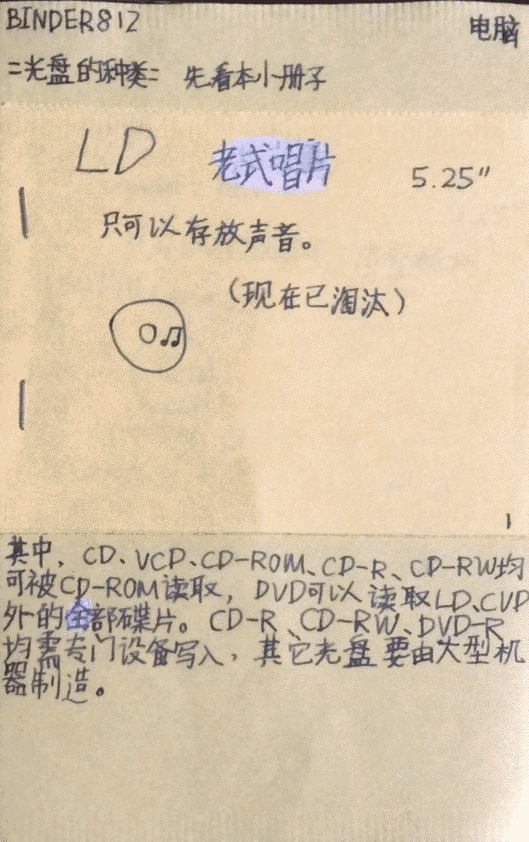 BINDER812
电脑
=光盘的种类= 先看本小册子
LD 老式唱片 5.25"
只可以存放声音。
(现在已淘汰)
1
其中，CD、VCD、CD-ROM、CD-R、CD-RW均
可被CD-ROM读取，DVD可以读取LD、CVD
外的全部碟片。CD-R、CD-RW、DVD-R
均需专门设备写入，其它光盘要由大型机
器制造。